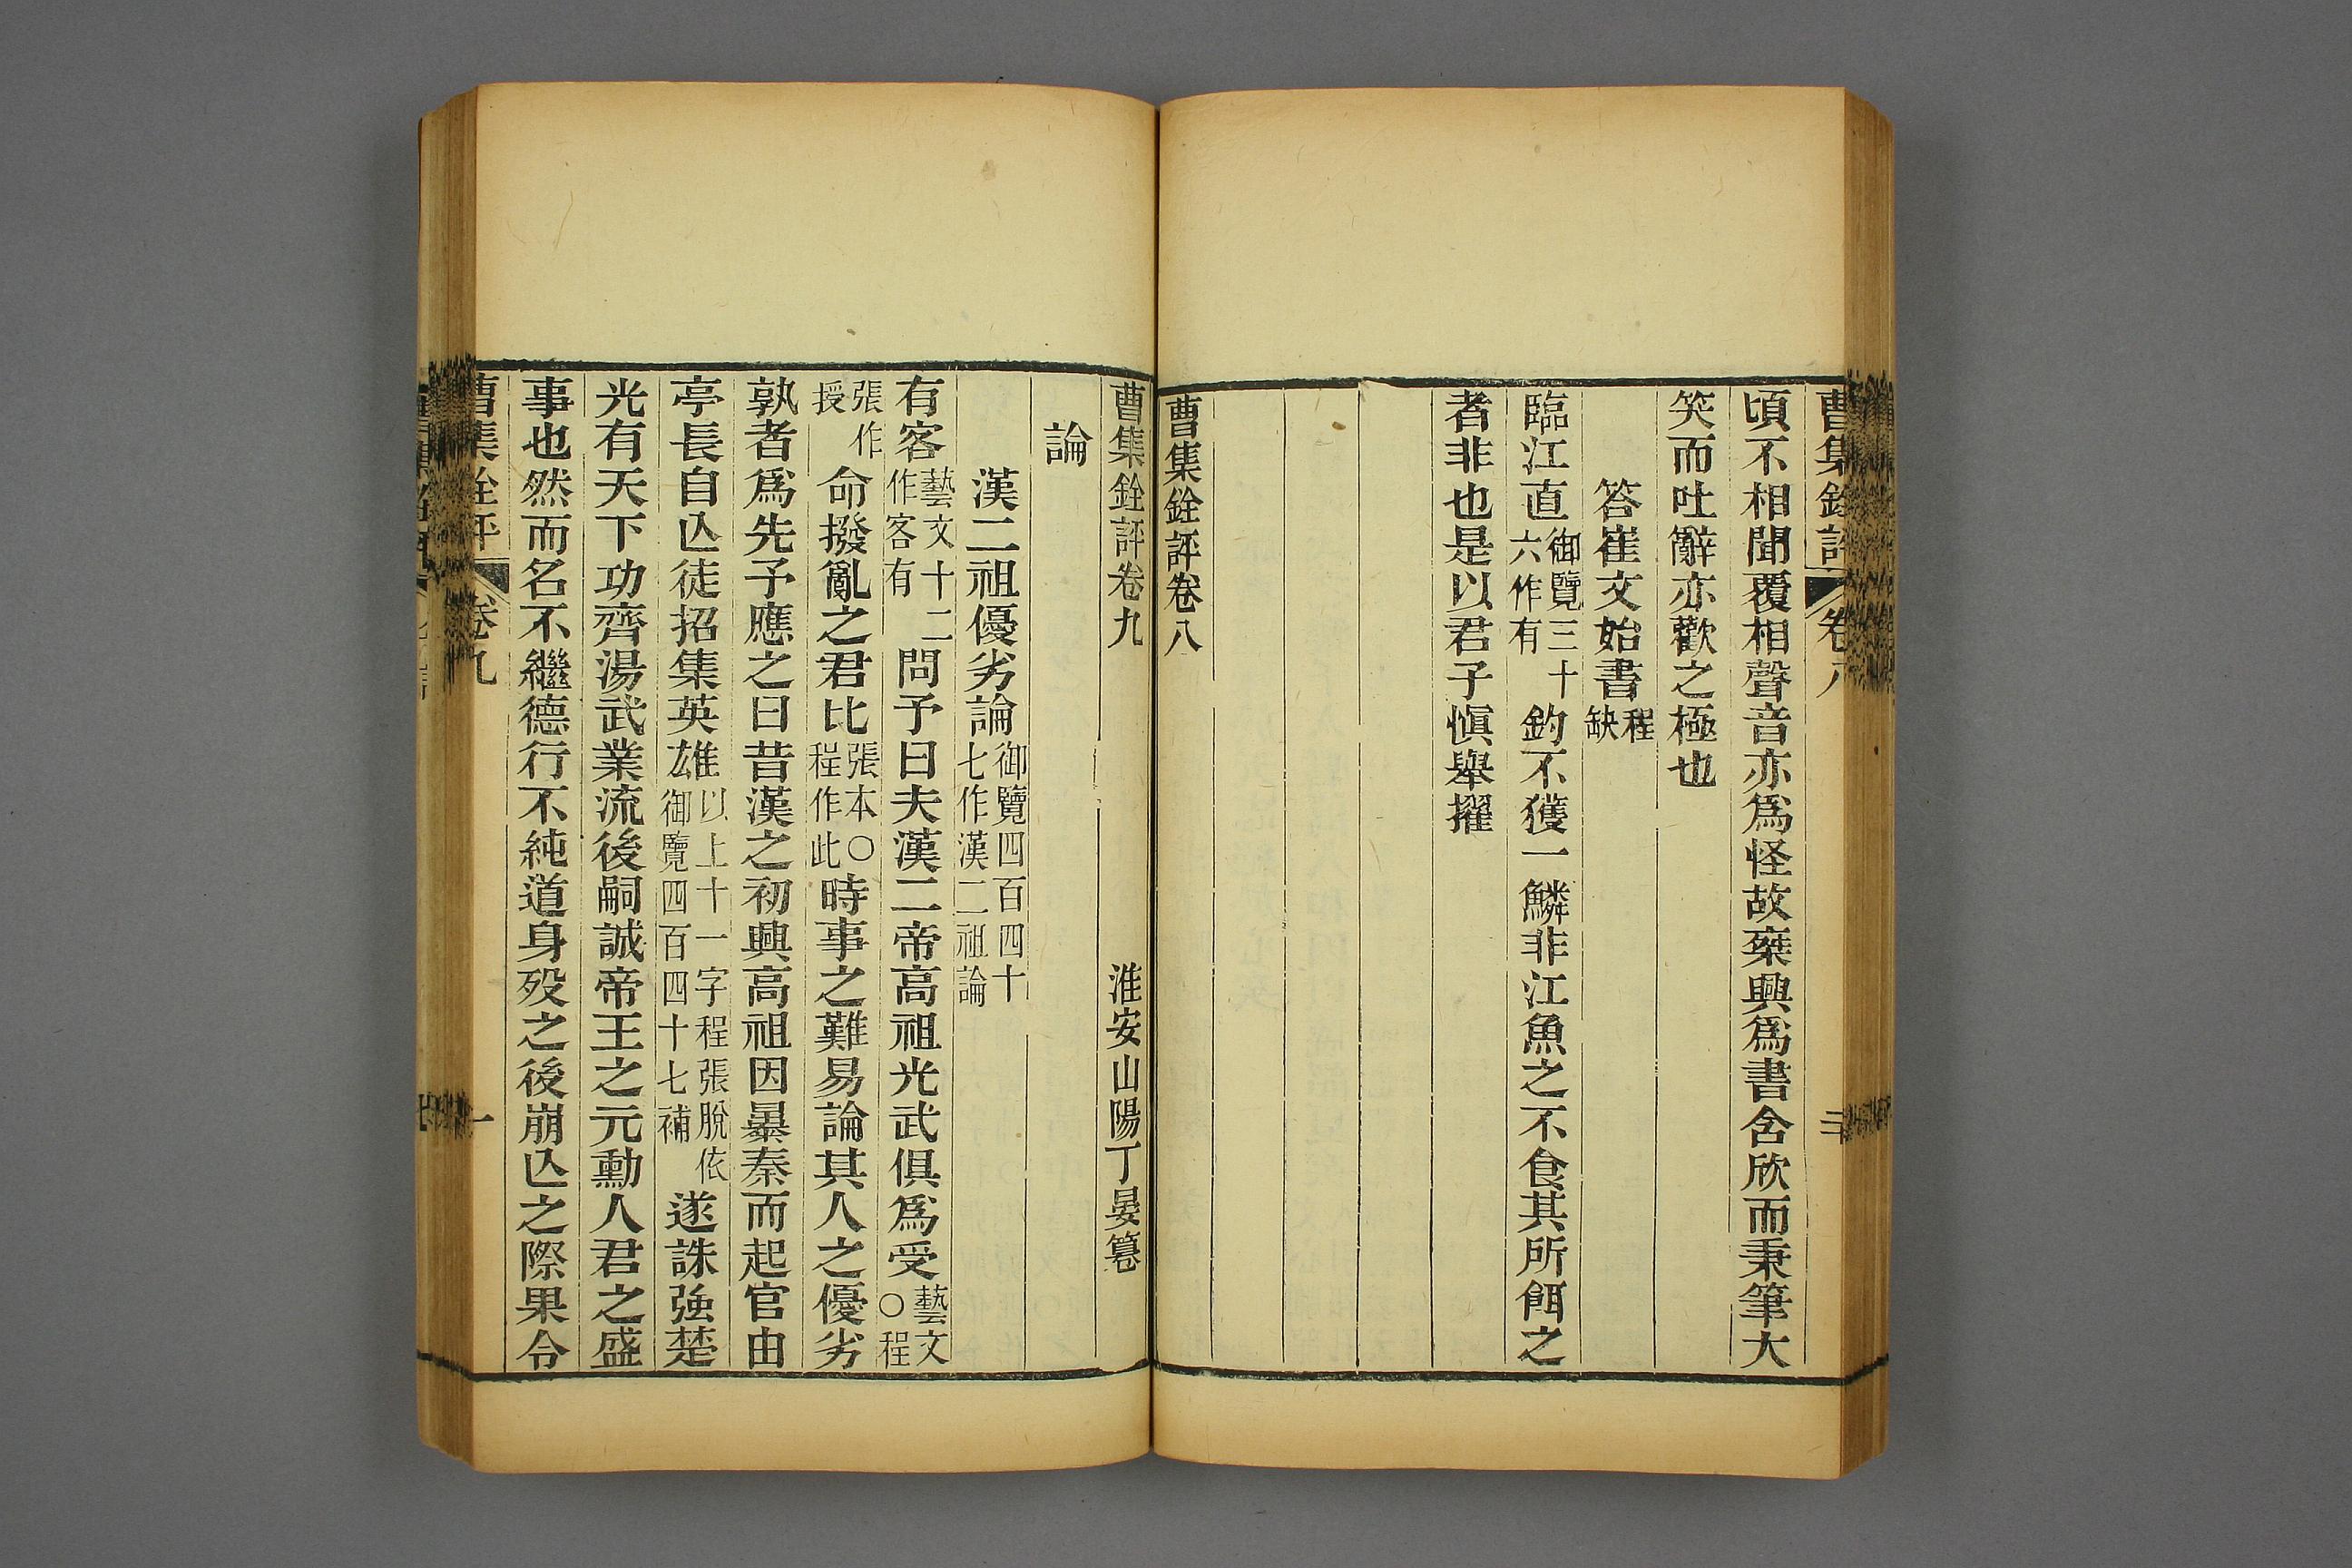 曹集銓評 卷八 二
頃不相聞覆相聲音亦爲怪故棄興爲書含欣而秉筆大
笑而吐辭亦歡之極也
答崔文始書程缺
臨江直御覽三十六作有釣不獲一鱗非江魚之不食其所餌之
者非也是以君子慎舉擢
曹集銓評卷八
曹集銓評卷九 淮安山陽丁晏簒
論
漢二祖優劣論御覽四百四十七作漢二祖論
有客藝文十二作客有問予曰夫漢二帝高祖光武俱爲受藝文○程
張作授命撥亂之君比張本○程作此時事之難易論其人之優劣
孰者爲先予應之曰昔漢之初興高祖因暴秦而起官由
亭長自亾徒招集英雄以上十一字程張脫依御覽四百四十七補遂誅強楚
光有天下功齊湯武業流後嗣誠帝王之元勳人君之盛
事也然而名不繼德行不純道身歿之後崩亾之際果令
曹集銓評 卷九 一